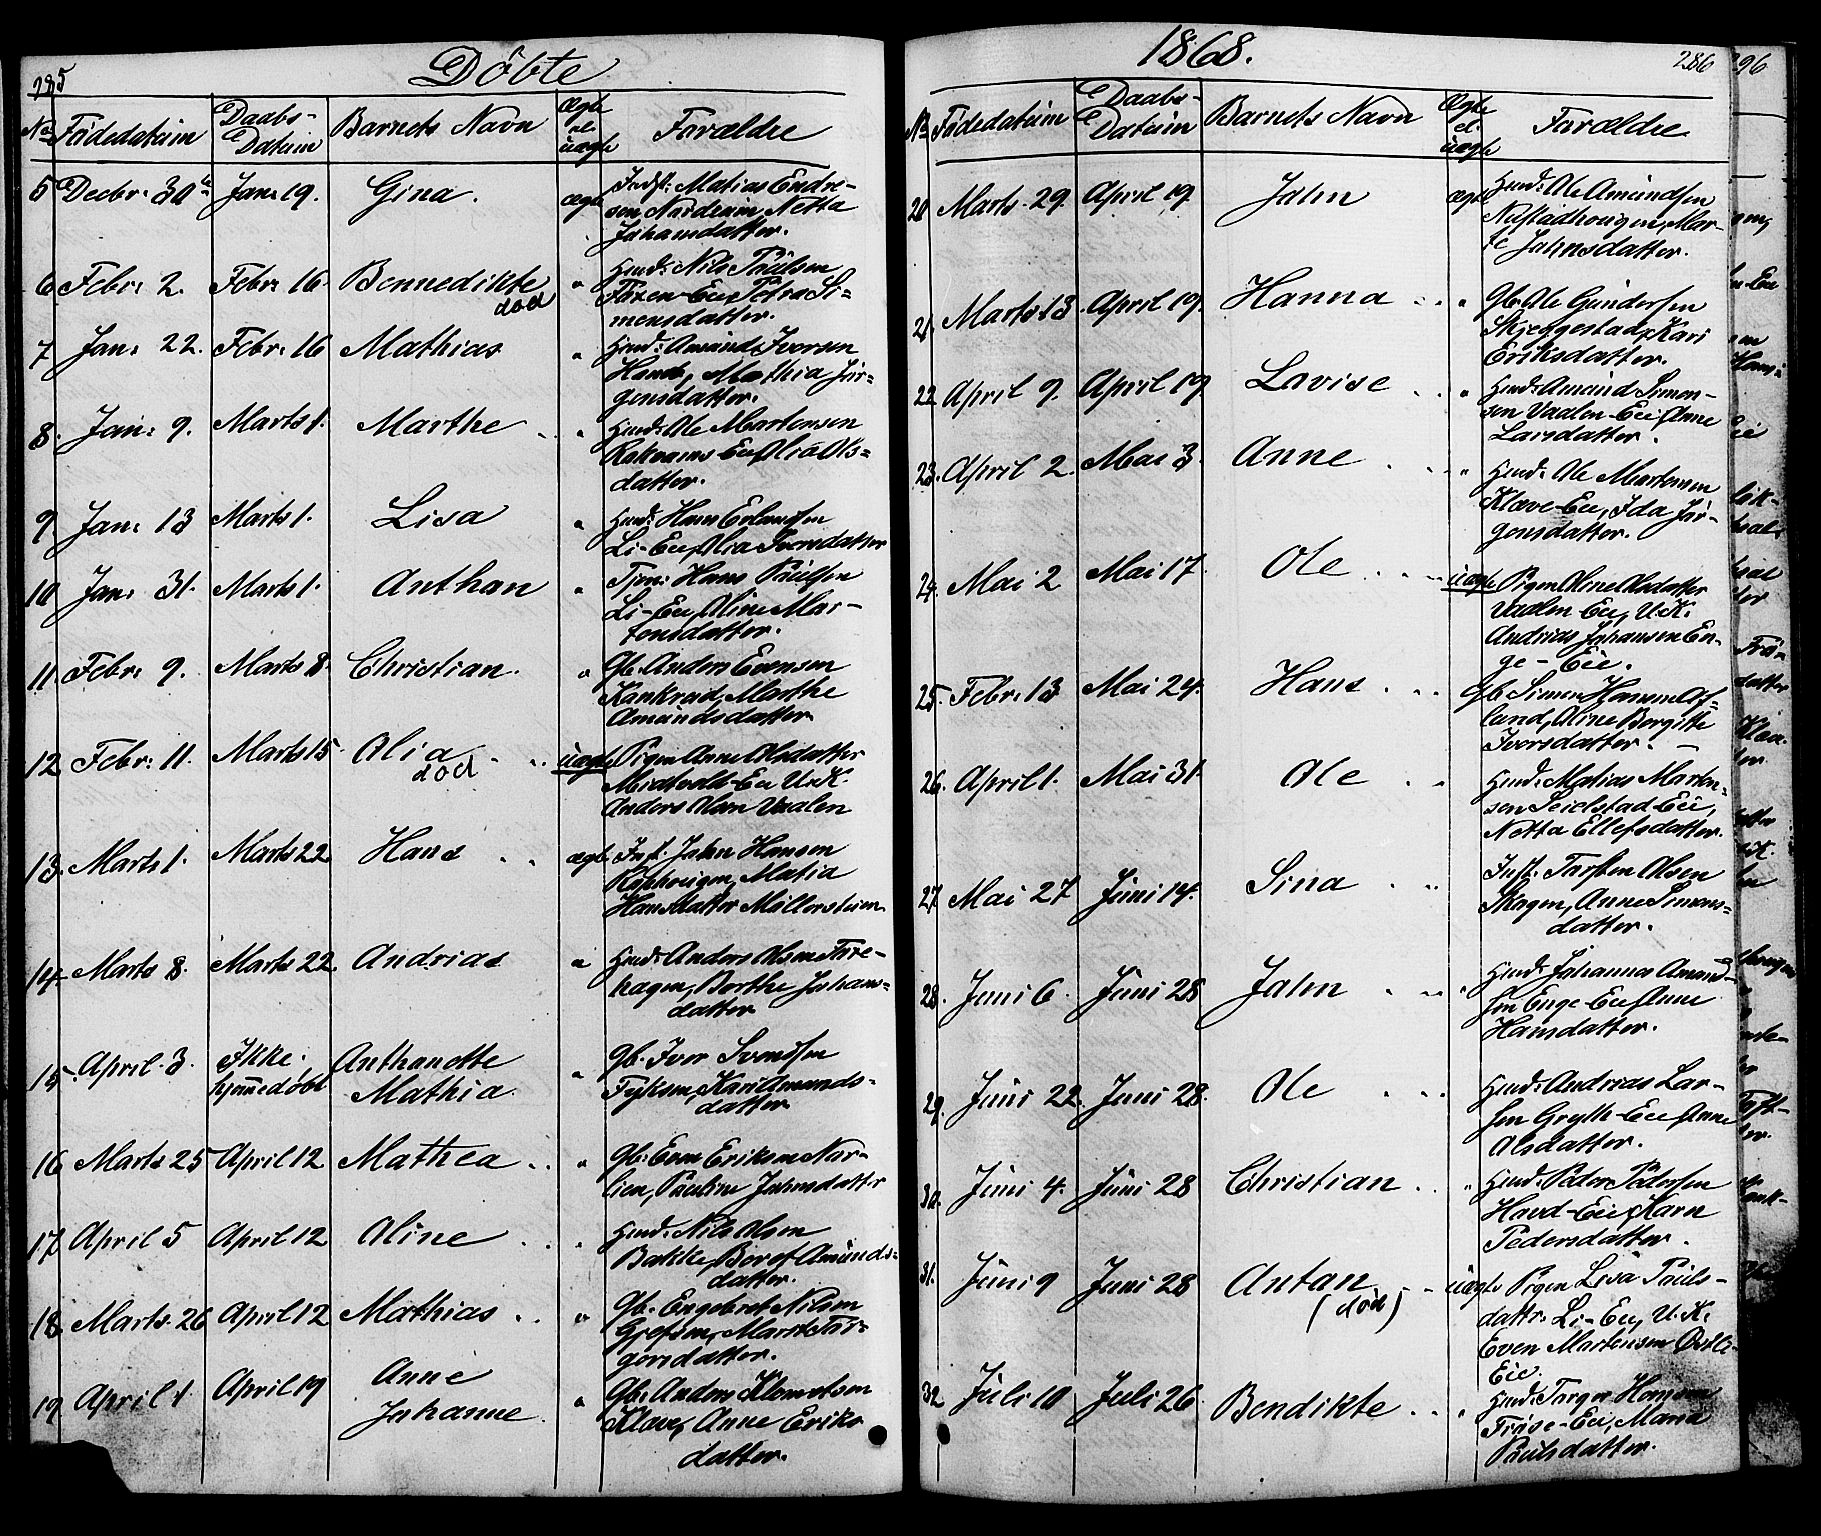 285
Döbte
No Födedatum Daabs-Datum Barnets Navn Ægte el. uægte Forældre
5 Decbr. 30te Jan. 19. Gina. ægte Indst: Matias Endre-
sen Nordrum, Netta
Johansdatter.
6 Febr. 2. Febr. 16. Bennedikte " Husd: Nils Paulsen
død Eie, Petra Si-
mensdatter.
7 Jan. 22. Febr. 16 Mathias " Husd: Amund Iversen
Mathia Jör-
gensdatter.
8. Jan. 9. Marts 1. Marthe " Husd: Ole Martensen
Rakvams Eie, Olia Ols-
datter.
9 Jan. 13 Marts 1. Lisa " Husd: Hans Erlandsen
Li-Eie, Olia Iversdatter
10 Jan. 31. Marts 1. Anthon " Tjen: Hans Paulsen
Li-Eie, Oline Mar-
tensdatter.
11 Febr. 9. Marts 8. Christian. " Gb. Anders Evensen
Kankrud, Marthe
Amundsdatter
12 Febr. 11. Marts 15 Olia uægte Pigen Anne Olsdatter
død Eie U.K.
Anders Olsen Vaalen
13. Marts 1. Marts 22 Hans ægte Inst. John Hansen
Matia
Hansdatter
14 Marts 8. Marts 22. Andrias " Husd: Anders Olsen Fore-
hagen, Berthe Johans-
datter
15. April 3. Ikke Anthonette " Gb. Iver Svendsen
hjemmedøbt Mathia Kari Amunds-
datter
16 Marts 25 April 12 Mathea " Gb. Even Eriksen Nor-
lien, Pauline Johnsdatter
17 April 5 April 12 Oline " Husd. Nils Olsen
Bakke, Beret Amunds-
datter.
18 Marts 26 April 12 Mathias " Gb. Engebret Nilsen
Marthe Tor-
gersdatter.
19 April 1 April 19 Anne " Gb. Anders Klemetsen
Johanne. Klæve, Anne Eriks
datter.
1868.
286
No Födedatum Daabs-Datum Barnets Navn Ægte el. uægte Forældre
20 Marts 29. April 19 John ægte Husd: Ole Amundsen
Nustadhougen, Mar-
te Johnsdatter.
21 Marts 13. April 19. Hanna " Gb. Ole Gundersen
Skjeggestad, Kari
Eriksdatter.
22 April 9. April 19 Lovise " Husd: Amund Simen-
sen Vaalen-Eie, Anne
Larsdatter.
23. April 2. Mai 3. Anne " Husd: Ole Martensen
Klæve-Eie, Ida Jör-
gensdatter.
24. Mai 2 Mai 17. Ole uægte Pigen Oline Olsdatter
Vaalen Eie, U.K.
Andrias Johansen En-
ge-Eie.
25. Febr. 13 Mai 24. Hans Gb Simen Hansen Af-
lund, Oline Borgitte
Iversdatter.
26. April 1. Mai 31. Ole Husd: Matias Marten-
sen Seielstad-Eie,
Netta Ellefsdatter.
27 Mai 27 Juni 14. Sina " Inst. Torsten Olsen
Skogen, Anne Simens-
datter.
28. Juni 6. Juni 28 John " Husd: Johannes Amund-
sen Enge-Eie, Anne
Hansdatter.
29. Juni 22. Juni 28. Ole Husd: Andrias Lar-
sen Grytte-Eie, Anne
Olsdatter.
30. Juni 4. Juni 28 Christian " Husd: Peder Pedersen
Eie, Karn
Pedersdatter.
31. Juni 9 Juni 28 Antan uægte Pigen Lisa Pauls-
(død) datter Li-Eie, U.K.
Even Martensen Østli-
Eie.
32 Juli 10 Juli 26 Bendikte " Husd: Torger Hansen
Eie, Maria
Paulsdatter.